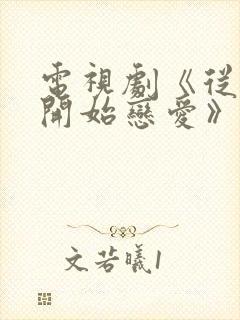 電視劇《從
開始戀愛》
文若曦1